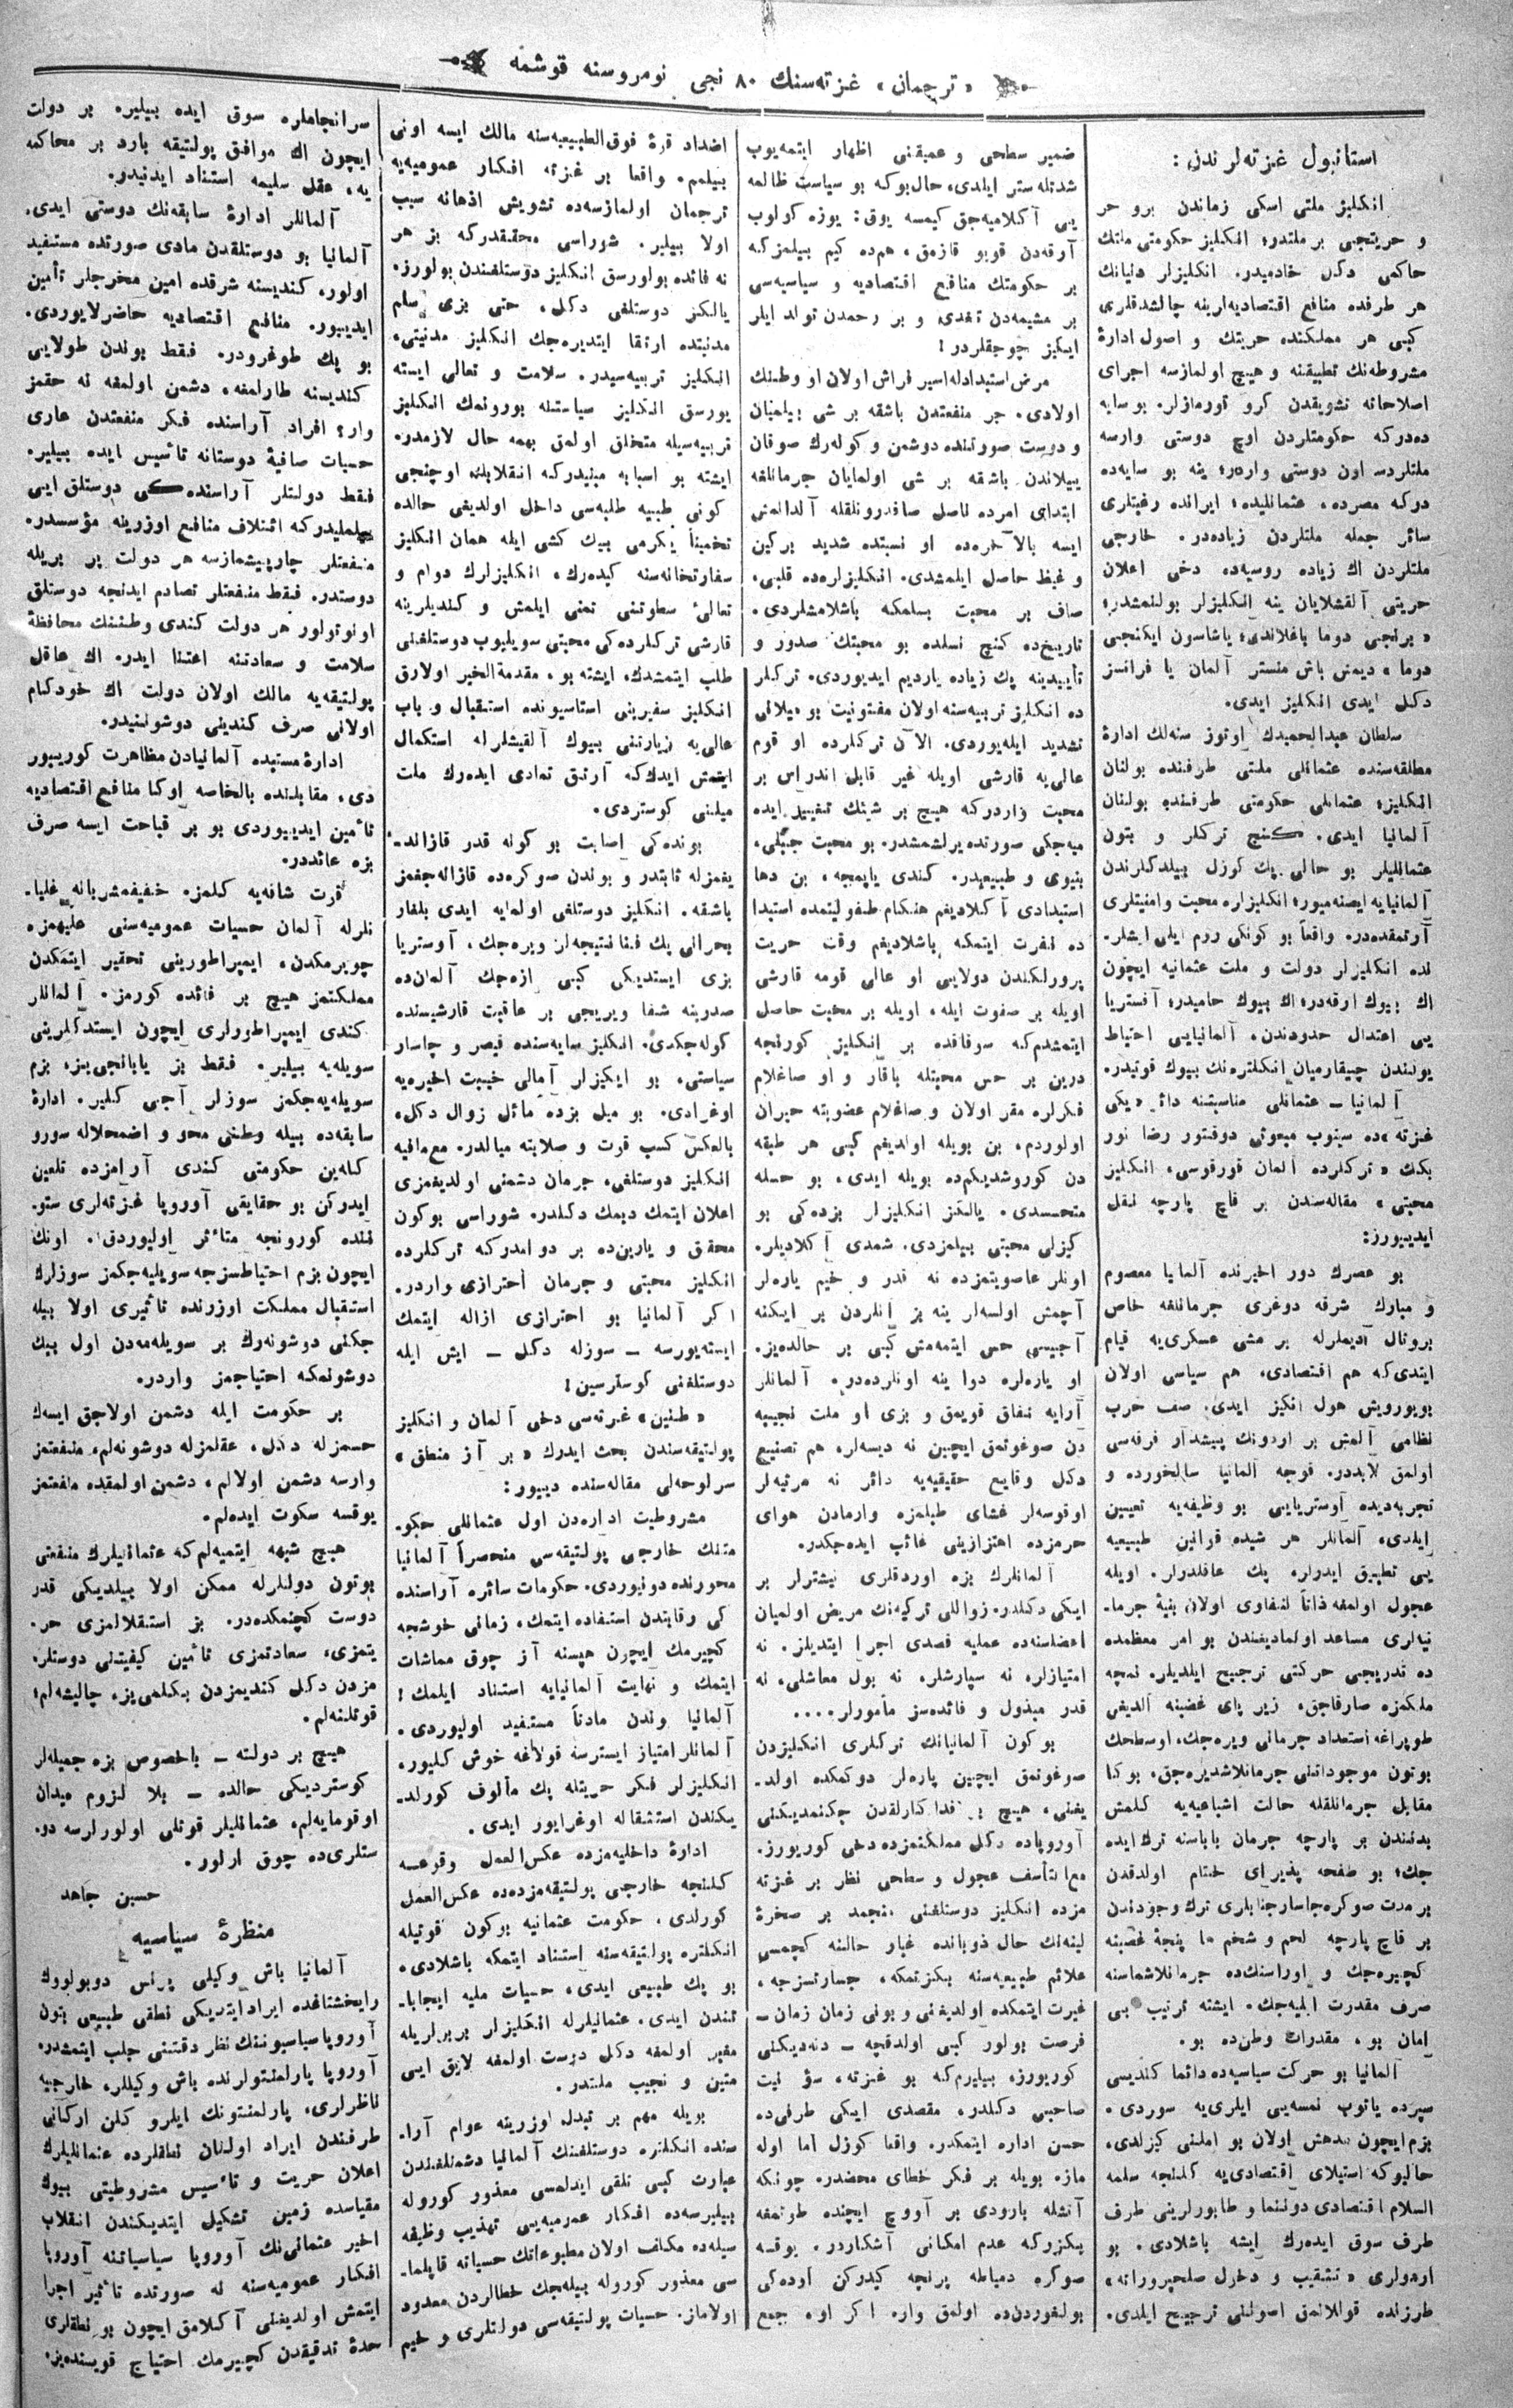 « ترجمان » غزته‌سنك ٨٠ نجی نومروسنه قوشمه
استانبول غزته‌لرندن :
انكلیز ملتی اسكی زماندن برو حر
و حریتجی بر ملتدر؛ انكلیز حكومتی ملتك
حاكمی دكل خادمیدر. انكلیزلر دنیانك
هر طرفده منافع اقتصادیه‌لرینه چالشدقلری
كبی هر مملكتده حریتك و اصول ادارۀ
مشروطه‌نك تطبیقنه و هیچ اولمازسه اجرای
اصلاحاته تشویقدن كرو تورمازلر. بو سایه
ده‌دركه حكومتلردن اوچ دوستی وارسه
ملتلردسه اون دوستی واردر؛ ینه بو سایه‌ده
دركه مصرده، عثمانلیده؛ ایرانده رغبتلری
سائر جمله ملتلردن زیاده‌در. خارجی
ملتلردن اك زیاده روسیه‌ده دخی اعلان
حریتی آلقشلایان ینه انكلیزلر بولنمشدر؛
« برنجی دوما باغلاندی؛ یاشاسون ایكنجی
دوما » دیمش باش منستر آلمان یا فرانسز
دكل ایدی انكلیز ایدی.
سلطان عبدالحمیدك اوتوز سنه‌لك ادارۀ
مطلقه‌سنده عثمانلی ملتی طرفنده بولنان
انكلیز؛ عثمانلی حكومتی طرفنده بولنان
آلمانیا ایدی. كنج تركلر و بتون
عثمانلیلر بو حالی پك كوزل بیلدكلرندن
آلمانیایه ایصنه‌میور؛ انكلیزلره محبت و امنیتلری
آرتمقده‌در. واقعاً بو كونكی روم ایلی ایشلر.
نده انكلیزلر دولت و ملت عثمانیه ایچون
اك بیوك ارقه‌در؛ اك بیوك حامیدر؛ آفستریا
یی اعتدال حدودندن، آلمانیایی احتیاط
یولندن چیقارمیان انكلتره‌نك بیوك قوتیدر.
آلمانیا ـ عثمانلی مناسبتنه دائر « یكی
غزته »ده سینوب مبعوثی دوقتور رضا نور
بكك « تركلرده آلمان قورقوسی، انكلیز
محبتی » مقاله‌سندن بر قاچ پارچه نقل
ایدیبورز:
بو عصرك دور اخیرنده آلمانیا معصوم
و مبارك شرقه دوغری جرمانلغه خاص
بروتال آدیملرله بر مشی عسكری‌یه قیام
ایتدی‌كه هم اقتصادی، هم سیاسی اولان
بویورویش هول انكیز ایدی. صف حرب
نظامی آلمش بر اردونك پیشدار فرقه‌سی
اولمق لابددر. قوجه آلمانیا سالخورده و
تجربه‌دیده آوستریایی بو وظیفه‌یه تعیین
ایلدی، آلمانلر هر شیده قوانین طبیعیه
یی تطبیق ایدرلر، پك عاقلدرلر. اویله
عجول اولمغه ذاتاً لنفاوی اولان بنیۀ جرما.
نیه‌لری مساعد اولمادیغندن بو امر معظمده
ده تدریجی حركتی ترجیح ایلدیلر. نمچه
ملكمزه صارقاجق، زیر پای غضبنه آلدیغی
طوپراغه استعداد جرمانی ویره‌جك، اوسطحك
بوتون موجوداتنی جرمانلاشدیره‌جق، بوكا
مقابل جرمانلقله حالت اشباعیه‌یه كلمش
بدنندن بر پارچه جرمان باباسنه ترك ایده
جك؛ بو صفحه پذیرای ختام اولدقدن
بر مدت صوكره جاسار جنابلری ترك وجودندن
بر قاچ پارچه لحم و شخم ما پنجۀ غضبنه
كچیره‌جك و اوراسنك‌ده جرمانلاشماسنه
صرف مقدرت ایلیه‌جك. ایشته ترتیب بی
امان بو، مقدرات وطن‌ده بو.
آلمانیا بو حركت سیاسیه‌ده دائما كندیسی
سپرده یاتوب نمسه‌یی ایلری‌یه سوردی.
بزم ایچون مدهش اولان بو املنی كیزلدی،
حالبوكه استیلای اقتصادی‌یه كلنجه سلمه
السلام اقتصادی دوننما و طابورلرینی طرف
طرف سوق ایده‌رك ایشه باشلادی. بو
اردولری « تشقیب و دخول صلحپرورانه »
طرزنده قوللانمق اصولنی ترجیح ایلدی.
ضمیر سطحی و عمیقنی اظهار ایتمه‌یوب
شدتله ستر ایلدی، حال‌بوكه بو سیاست ظالمه
یی آكلامیه‌جق كیمسه یوق: یوزه كولوب
آرقه‌دن قویو قازمق، هم‌ده كیم بیلمزكه
بر حكومتك منافع اقتصادیه و سیاسیه‌سی
بر مشیمه‌دن تغدی و بر رحمدن تولد ایلر
ایكیز چوجقلردر!
مرض استبدادله اسیر فراش اولان او وطنك
اولادی، جر منفعتدن باشقه بر شی بیلمیان
و دوست صورتنده دوشمن و كوله‌رك صوقان
ییلاندن باشقه بر شی اولمایان جرمانلغه
ابتدای امرده ناصل صافدرونلقله آلدانمش
ایسه بالآخره‌ده او نسبتده شدید بركین
و غیظ حاصل ایلمشدی. انكلیزلره‌ده قلبی،
صاف بر محبت بسلمكه باشلامشلردی.
تاریخ‌ده كنج نسلده بو محبتك صدور و
تأییدینه پك زیاده یاردیم ایدیوردی. تركلر
ده انكلیز تربیه‌سنه اولان مفتونیت بو میلانی
تشدید ایله‌یوردی. الآن تركلرده او قوم
عالی‌یه قارشی اویله غیر قابل اندراس بر
محبت واردركه هیچ بر شینك تغییر ایده
میه‌جكی صورتده یرلشمشدر. بو محبت جبلی،
بنیوی و طبیعیدر. كندی یاپمجه، بن دها
استبدادی آكلادیغم هنكام طفولیتمده استبدا
ده نفرت ایتمكه باشلادیغم وقت حریت
پرورلكندن دولایی او عالی قومه قارشی
اویله بر صفوت ایله، اویله بر محبت حاصل
ایتمشدم‌كه سوقاقده بر انكلیز كورنجه
درین بر حس محبتله باقار و او صاغلام
فكرلره مقر اولان و صاغلام عضویته حیران
اولوردم، بن بویله اولدیغم كبی هر طبقه
دن كوروشدیكم‌ده بویله ایدی، بو حسله
متحسسدی. یالكز انكلیزلر بزده‌كی بو
كیزلی محبتی بیلمزدی. شمدی آكلادیلر.
اونلر عاصویتمزده نه قدر و خیم یاره‌لر
آچمش اولسه‌لر ینه بز آنلردن بر ایكنه
آجیسی حس ایتمه‌مش كبی بر حالده‌یز.
او یاره‌لره دوا ینه اونلرده‌در. آلمانلر
آرایه نفاق قویمق و بزی او ملت نجیبیه
دن صوغوتمق ایچین نه دیسه‌لر، هم تصنیع
دكل وقایع حقیقیه‌یه دائر نه مرثیه‌لر
اوقوسه‌لر غشای طبلمزه وارمادن هوای
حرمزده اهتزازینی غائب ایده‌جكدر.
آلمانلرك بزه اوردقلری نیشترلر بر
ایكی دكلدر. زواللی تركیه‌نك مریض اولمیان
اعضاسنه‌ده عملیه قصدی اجرا ایتدیلر. نه
امتیازلر، نه سپارشلر، نه بول معاشلی، نه
قدر مبذول و فائده‌سز مأمورلر....
بو كون آلمانیانك تركلری انكلیزدن
صوغوتمق ایچین پاره‌لر دوكمكده اولد.
یغنی، هیچ بر فداكارلقدن چكنمدیكنی
آوروپاده دكل مملكتمزده دخی كوریورز.
مع‌التأسف عجول و سطحی نظر بر غزته
مزده انكلیز دوستلغنی منجمد بر صخرۀ
لینه‌نك حال ذوبانده غبار حالنه كچمسی
علائم طبیعیه‌سنه بكزتمكه، جسارتسزجه،
غیرت ایتمكده اولدیغنی و بونی زمان زمان ـ
فرصت بولور كبی اولدقچه ـ دنه‌دیكنی
كوریورز، بیلیرم‌كه بو غزته، سؤ نیت
صاحبی دكلدر، مقصدی ایكی طرفی‌ده
حسن اداره ایتمكدر. واقعا كوزل اما اوله
ماز. بویله بر فكر خطای محضدر. چونكه
آتشله بارودی بر آووج ایچنده طوتمغه
بكزركه عدم امكانی آشكاردر. یوقسه
صوكره دمیاطه پرنچه كیدركن اوده‌كی
بولغوردن‌ده اولمق وار. اكر او، جمع
اضداد قوۀ فوق‌الطبیعیه‌سنه مالك ایسه اونی
بیلمم. واقعا بر غزته افكار عمومیه‌یه
ترجمان اولمازسه‌ده تشویش اذهانه سبب
اولا بیلیر. شوراسی محققدركه بز هر
نه فائده بولورسق انكلیز دوستلغندن بولورز.
یالكز دوستلغی دكل، حتی بزی سلم
مدنیتده ارتقا ایتدیره‌جك انكلیز مدنیتی،
انكلیز تربیه‌سیدر. سلامت و تعالی ایسته
یورسق انكلیز سیاستنه بورونمك انكلیز
تربیه‌سیله متخلق اولمق بهمه حال لازمدر.
ایشته بو اسبابه مبنیدركه انقلابك اوچنجی
كونی طبیه طلبه‌سی داخل اولدیغی حالده
تخمیناً یكرمی بیك كشی ایله همان انكلیز
سفارتخانه‌سنه كیده‌رك، انكلیزلرك دوام و
تعالیٔ سطوتنی تمنی ایلمش و كندیلرینه
قارشی تركلرده‌كی محبتی سویلیوب دوستلغنی
طلب ایتمشدك، ایشته بو، مقدمة الخیر اولارق
انكلیز سفیرینی استاسیونده استقبال و باب
عالی‌یه زیارتنی بیوك آلقیشلرله استكمال
ایتمش ایدك‌كه آرتق تمادی ایده‌رك ملت
میلنی كوستردی.
بونده‌كی اصابت بو كونه قدر قازاند.
یغمزله ثابتدر و بوندن صوكره‌ده قازانه‌جغمز
باشقه. انكلیز دوستلغی اولمایه ایدی بلغار
بحرانی پك فنا نتیجه‌لر ویره‌جك، آوستریا
بزی ایستدیكی كبی ازه‌جك آلمان‌ده
صدرینه شفا ویریجی بر عاقبت قارشیسنده
كوله‌جكدی. انكلیز سایه‌سنده قیصر و چاسار
سیاستی، بو ایكیزلر آمالی خیبت اخیره‌یه
اوغرادی. بو میل بزده مائل زوال دكل،
بالعكس كسب قوت و صلابته میالدر. مع‌مافیه
انكلیز دوستلغی، جرمان دشمنی اولدیغمزی
اعلان ایتمك دیمك دكلدر. شوراسی بوكون
محقق و یارین‌ده بر دوامدركه تركلرده
انكلیز محبتی و جرمان احترازی واردر.
اكر آلمانیا بو احترازی ازاله ایتمك
ایسته‌یورسه ـ سوزله دكل ـ ایش ایله
دوستلغنی كوسترسین!
« طنین » غزته‌سی دخی آلمان و انكلیز
پولتیقه‌سندن بحث ایدرك « بر آز منطق »
سرلوحه‌لی مقاله‌سنده دیبور:
مشروطیت اداره‌دن اول عثمانلی حكو.
متنك خارجی پولتیقه‌سی منحصراً آلمانیا
محورنده دونیوردی. حكومات سائره آراسنده
كی رقابتدن استفاده ایتمك، زمانی خوشجه
كچیرمك ایچون هپسنه آز چوق مماشات
ایتمك و نهایت آلمانیایه استناد ایلمك!
آلمانیا بوندن مادتاً مستفید اولیوردی.
آلمانلر امتیاز ایسترسه قولاغه خوش كلیور،
انكلیزلر فكر حریتله پك مألوف كورلد.
یكندن استثقاله اوغرایور ایدی.
ادارۀ داخلیه‌مزده عكس‌العمل وقوعه
كلنجه خارجی پولتیقه‌مزده‌ده عكس‌العمل
كورلدی. حكومت عثمانیه بوكون قوتیله
انكلتره پولتیقه‌سنه استناد ایتمكه باشلادی،
بو پك طبیعی ایدی، حسیات ملیه ایجابا.
تندن ایدی. عثمانلیلرله انكلیزلر بربرلریله
مغبر اولمغه دكل دوست اولمغه لایق ایی
متین و نجیب ملتدر.
بویله مهم بر تبدل اوزرینه عوام آرا.
سنده انكلتره دوستلغنك آلمانیا دشمنلغندن
عبارت كبی تلقی ایدلمسی معذور كوروله
بیلیرسه‌ده افكار عمومیه‌یی تهذیب وظیفه
سیله‌ده مكلف اولان مطبوعاتك حسیاته قاپیلما.
سی معذور كوروله بیله‌جك خطالردن معدود
اولاماز. حسیات پولتیقه‌سی دولتلری و خیم
سرانجاملره سوق ایده بیلیر. بر دولت
ایچون اك موافق پولتیقه بارد بر محاكمه
یه، عقل سلیمه استناد ایدنیدر.
آلمانلر ادارۀ سابقه‌نك دوستی ایدی.
آلمانیا بو دوستلقدن مادی صورتده مستفید
اولور، كندیسنه شرقده امین مخرجلر تأمین
ایدیبور. منافع اقتصادیه حاضرلایوردی.
بو پك طوغرودر. فقط بوندن طولایی
كندیسنه طارلمغه، دشمن اولمغه نه حقمز
وار؛ افراد آراسنده فكر منفعتدن عاری
حسیات صافیۀ دوستانه تأسیس ایده بیلیر.
فقط دولتلر آراسنده‌كی دوستلق ایی
بیلملیدركه ائتلاف منافع اوزرینه مؤسسدر.
منفعتلر چارپیشمازسه هر دولت بر بریله
دوستدر. فقط منفعتلر تصادم ایدنجه دوستلق
اونوتولور هر دولت كندی وطننك محافظۀ
سلامت و سعادتنه اعتنا ایدر. اك عاقل
پولتیقه‌یه مالك اولان دولت اك خودكام
اولانی صرف كندینی دوشونیدر.
ادارۀ مستبده آلمانیادن مظاهرت كوریبور
دی. مقابلنده بالخاصه اوكا منافع اقتصادیه
تأمین ایدیبوردی بو بر قباحت ایسه صرف
بزه عائددر.
قوت شافه‌یه كلمز. خفیفمشربانه غلیا.
نلرله آلمان حسیات عمومیه‌سنی علیهمزه
چویرمكدن، ایمپراطورینی تحقیر ایتمكدن
مملكتمز هیچ بر فائده كورمز. آلمانلر
كندی ایمپراطورلری ایچون ایستدكلرینی
سویله‌یه بیلیر. فقط بز یابانجی‌یز، بزم
سویله‌یه‌جكمز سوزلر آجی كلیر. ادارۀ
سابقه‌ده بیله وطنی محو و اضمحلاله سورو
كله‌ین حكومتی كندی آرامزده تلعین
ایدركن بو حقایقی آوروپا غزته‌لری ستو.
ننده كورونجه متأثر اولیوردق. اونك
ایچون بزم احتیاطسزجه سویلیه‌جكمز سوزلرك
استقبال مملكت اوزرنده تأثیری اولا بیله
جكنی دوشونه‌رك بر سویله‌مه‌دن اول بیك
دوشونمكه احتیاجمز واردر.
بر حكومت ایله دشمن اولاجق ایسه‌ك
حسمزله دكل، عقلمزله دوشونه‌لم، منفعتمز
وارسه دشمن اولالم، دشمن اولمقده منفعتمز
یوقسه سكوت ایده‌لم.
هیچ شبهه ایتمیه‌لم‌كه عثمانلیلرك منفعتی
بوتون دولتلرله ممكن اولا بیلدیكی قدر
دوست كچنمكده‌در. بز استقلالمزی حر.
یتمزی، سعادتمزی تأمین كیفیتنی دوستلر.
مزدن دكل كندیمزدن بكلملی‌یز، چالیشه‌لم؛
قوتلنه‌لم.
هیچ بر دولته ـ باخصوص بزه جمیله‌لر
كوستردیكی حالده ـ بلا لزوم میدان
اوقومایه‌لم، عثمانلیلر قوتلی اولورلرسه دو.
ستلری‌ده چوق اولور.
حسین جاهد
منظرۀ سیاسیه
آلمانیا باش وكیلی پرنس دوبولووك
رایخشتاغده ایراد ایتدیكی نطقی طبیعی بتون
آوروپا سیاسیونك نظر دقتنی جلب ایتمشدر.
آوروپا پارلمنتولرنده باش وكیللر، خارجیه
ناظرلری، پارلمنتونك ایلرو كلن اركانی
طرفندن ایراد اولنان نطقلرده عثمانلیلرك
اعلان حریت و تأسیس مشروطیتی بیوك
مقیاسده زمین تشكیل ایتدیكندن انقلاب
اخیر عثمانی‌نك آوروپا سیاسیاتنه آوروپا
افكار عمومیه‌سنه نه صورتده تأثیر اجرا
ایتمش اولدیغنی آكلامق ایچون بو نطقلری
حدۀ تدقیقدن كچیرمك احتیاج قویسنده‌یز.